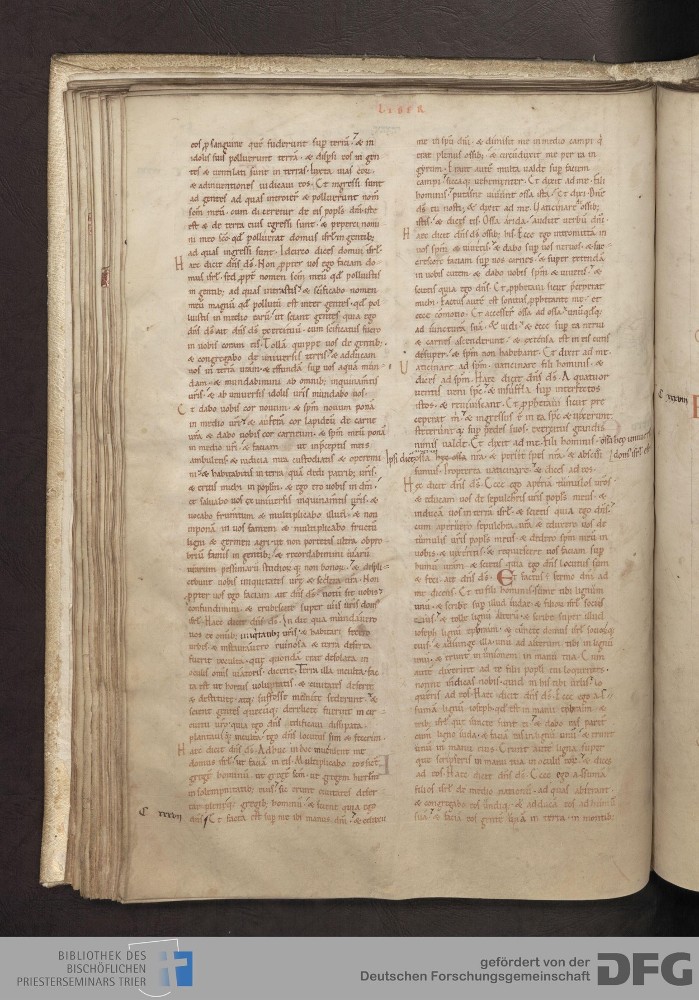 LIBER
eos p sanguine quē fuderunt sup terrā, & in
idolis suis polluerunt terrā. & dispsi eos in gen
tes & ventilati sunt in terras. Iuxta vias eorū
& adinventiones iudicavi eos. Et ingressi sunt
ad gentes ad quas introierunt & polluerunt nom̄
scm̄ meū. cum diceretur de eis popls dn̄i iste
est & de terra eius egressi sunt. & peperci nomi
ni meo scō qd̄ polluerat domus isrl in gentib;
ad quas ingressi sunt. Idcirco dices domui isrl.
Haec dicit dn̄s ds̄. Non ppter vos ego faciam do
mus isrl. sed ppt̄ nomen scm̄ meū qd̄ polluistis
in gentib; ad quas intrastis. & scificabo nomen
meū magnū qd̄ pollutū est inter gentes. qd̄ pol
luistis in medio earū. ut sciant gentes quia ego
dn̄s ait dn̄s ds̄ exercituū. cum scificatus fuero
in vobis coram eis. Tollā quippe vos de gentib;
& congregabo de universis terris. & adducam
vos in terrā vrām. & effundā sup vos aquā mun
dam. & mundabimini ab omnib; inquinamtis
vris. & ab universis idolis vris mundabo vos.
Et dabo vobis cor novum. & spm̄ novum ponā
in medio vri. & auferā cor lapideū de carne
vrā & dabo vobis cor carneum. & spm̄ meū ponā
in medio vri. & faciam ut in pceptis meis
ambuletis. & iudicia mea custodiatis & operemi
ni. & habitabitis in terra quā dedi patrib; vris.
& eritis michi in poplm̄. & ego ero vobis in dm̄.
et salvabo vos ex universis inquinamtis vris. &
vocabo frumtum & multiplicabo illud. & non
imponā in vos famem & multiplicabo fructū
ligni & germen agri ut non portetis ultra obpro
briū famis in gentib; & recordabimini viarū
vrarum pessimarū studiorūq; non bonorū. & displi
cebunt vobis iniquitates vrē & scelera vrā. Non
ppter vos ego faciam ait dn̄s ds̄. notū sit vobis.
confundimini. & erubescite super viis vris dom
isrl. Haec dicit dn̄s ds̄. In die qua mundavero
vos ex omib; iniqtatib; vris. & habitari fecero
urbes. & instauravero ruinosa & terra deserta
fuerit exculta. que quondā erat desolata in
oculis omīs viatoris. dicent. Terra illa inculta fac
ta est ut hortus voluptatis. & civitates deserte
& destitute. atq; suffosse munite sederunt. &
scient gentes quecūq; derelicte fuerint in cir
cuitu vrō. quia ego dn̄s edificavi dissipata.
plantaviq; inculta. ego dn̄s locutus sim & fecerim.
Haec dicit dn̄s ds̄. Adhuc in hoc invenient me
domus isrl. ut faciā in eis. Multiplicabo eos sicut
gregē hominū. ut gregē scm̄. ut gregem hierlm̄
in sollempnitatib; eius. sic erunt civitates deser
tae. plenēq; gregib; hominū. & scient quia ego
C xxxvii dn̄s. Et facta est sup me manus dn̄i. & eduxit
me in spū dn̄i. & dimisit me in medio campi q
erat plenus ossib; & circūduxit me per ea in
gyrum. Erant autē multa valde sup faciem
campi. siccaq; vehementer. Et dixit ad me. fili
hominis. putasne vivent ossa ista. Et dixi. Dn̄e
ds̄ tu nosti. & dixit ad me. Vaticinare ossib;
istis. & dices eis. Ossa arida. audite verbū dn̄i.
Haec dicit dn̄s ds̄ ossib; his. Ecce ego intromittā in
vos spm̄ & vivetis. & dabo sup vos nervos. & suc
crescere faciam sup vos carnes. & super extendā
in vobis cutem. & dabo vobis spm̄ & vivetis. &
scietis quia ego dn̄s. Et pphetavi sicut pceperat
michi. Factus autē est sonitus pphetante me. et
ecce cōmotio. Et accesserē ossa ad ossa. unūqdq;
ad iuncturā suā. & vidi. & ecce sup ea nervi
& carnes ascenderunt. & extensa est in eis cutis
desuper. & spm̄ non habebant. Et dixit ad me.
Vaticinare ad spm̄. vaticinare fili hominis. &
dices ad spm̄. Haec dicit dn̄s ds̄. A quatuor
ventis veni spc. & insuffla sup interfectos
istos. & reviviscant. Et pphetavi sicut pre
ceperat m. & ingressus ē in ea spc & vixerunt.
steteruntq; sup pedes suos. exercitus grandis
nimis valde. Et dixit ad me. fili hominis. ossa hec universa
Ipsi dicent ossa nrā. & periit spes nrā. & abscisi domus isrl est
sumus. Propterea vaticinare. & dices ad eos.
Haec dicit dn̄s ds̄. Ecce ego aperiā tumulos vros
& educam vos de sepulchris vris popls meus. &
inducā vos in terrā isrl. & scietis quia ego dn̄s.
cum aperuero sepulchra vrā. & eduxero vos de
tumulis vris popls meus. & dedero spm̄ meū in
vobis. & vixeritis. & requiescere vos faciam sup
humū vrām. & scietis quia ego dn̄s locutus sum
& feci. ait dn̄s ds̄. Et factus sermo dn̄i ad
me dicens. Et tu fili hominis. sume tibi lignum
unū. & scribe sup illud. iudae. & filiorū isrl sociis
eius. & tolle lignū alterū. & scribe super illud
ioseph ligno effraim. & cuncte domui isrl sociorūq;
eius. & adiunge illa unū ad alterum tibi in lignū
unū. & erunt in unionem in manu tua. Cum
autē dixerint ad te filii popli tui loquentes.
nonne indicas nobis quid in his tibi velis. lo
queris ad eos. Haec dicit dn̄s ds̄. Ecce ego assu
mā lignū ioseph qd̄ est in manu effraim. &
trib; isrl. que iuncte sunt ei. & dabo eas pariter
cum ligno iuda. & faciā eas in lignū unū. & erunt
unū in manu eius. Erunt autē ligna. super
que scripseris in manu tua in oculis eorū. & dices
ad eos. Haec dicit dn̄s ds̄. Ecce ego assumā
filios isrl de medio nationū. ad quas abierunt.
& congregabo eos undiq; & adducā eos ad humū
suā. & faciā eos gentē unā in terra. in montib;
C xxxviii
BIBLIOTHEK DES
BISCHÖFLICHEN
PRIESTERSEMINARS TRIER
gefördert von der
Deutschen Forschungsgemeinschaft
DFG